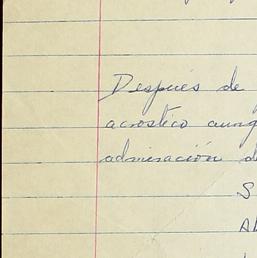 Después de
acrostico aunq
admiración d
S